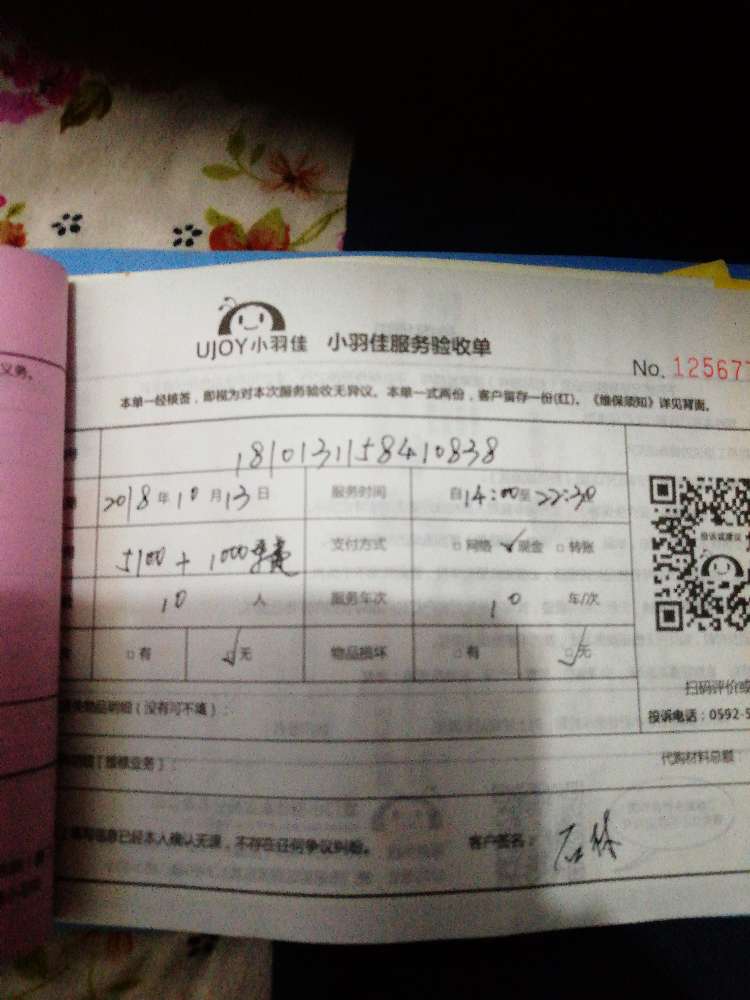 义务。
UJOY小羽佳 小羽佳服务验收单
No. 125677
本单一经核签，即视为对本次服务验收无异议。本单一式两份，客户留存一份(红)。《维保须知》详见背面。
1810131158410838
2018年10月13日 服务时间 自14:00至22:30
5100+1000 支付方式 □网络 ✓现金 □转账
10 人 服务车次 10 车/次
□有 ☑无 物品损坏 □有 ☑无
投诉或建议
扫码评价或
投诉电话：0592-5
物品明细（没有可不填）：
代购材料总额：
信息已经本人确认无误，不存在任何争议纠纷。 客户签名：